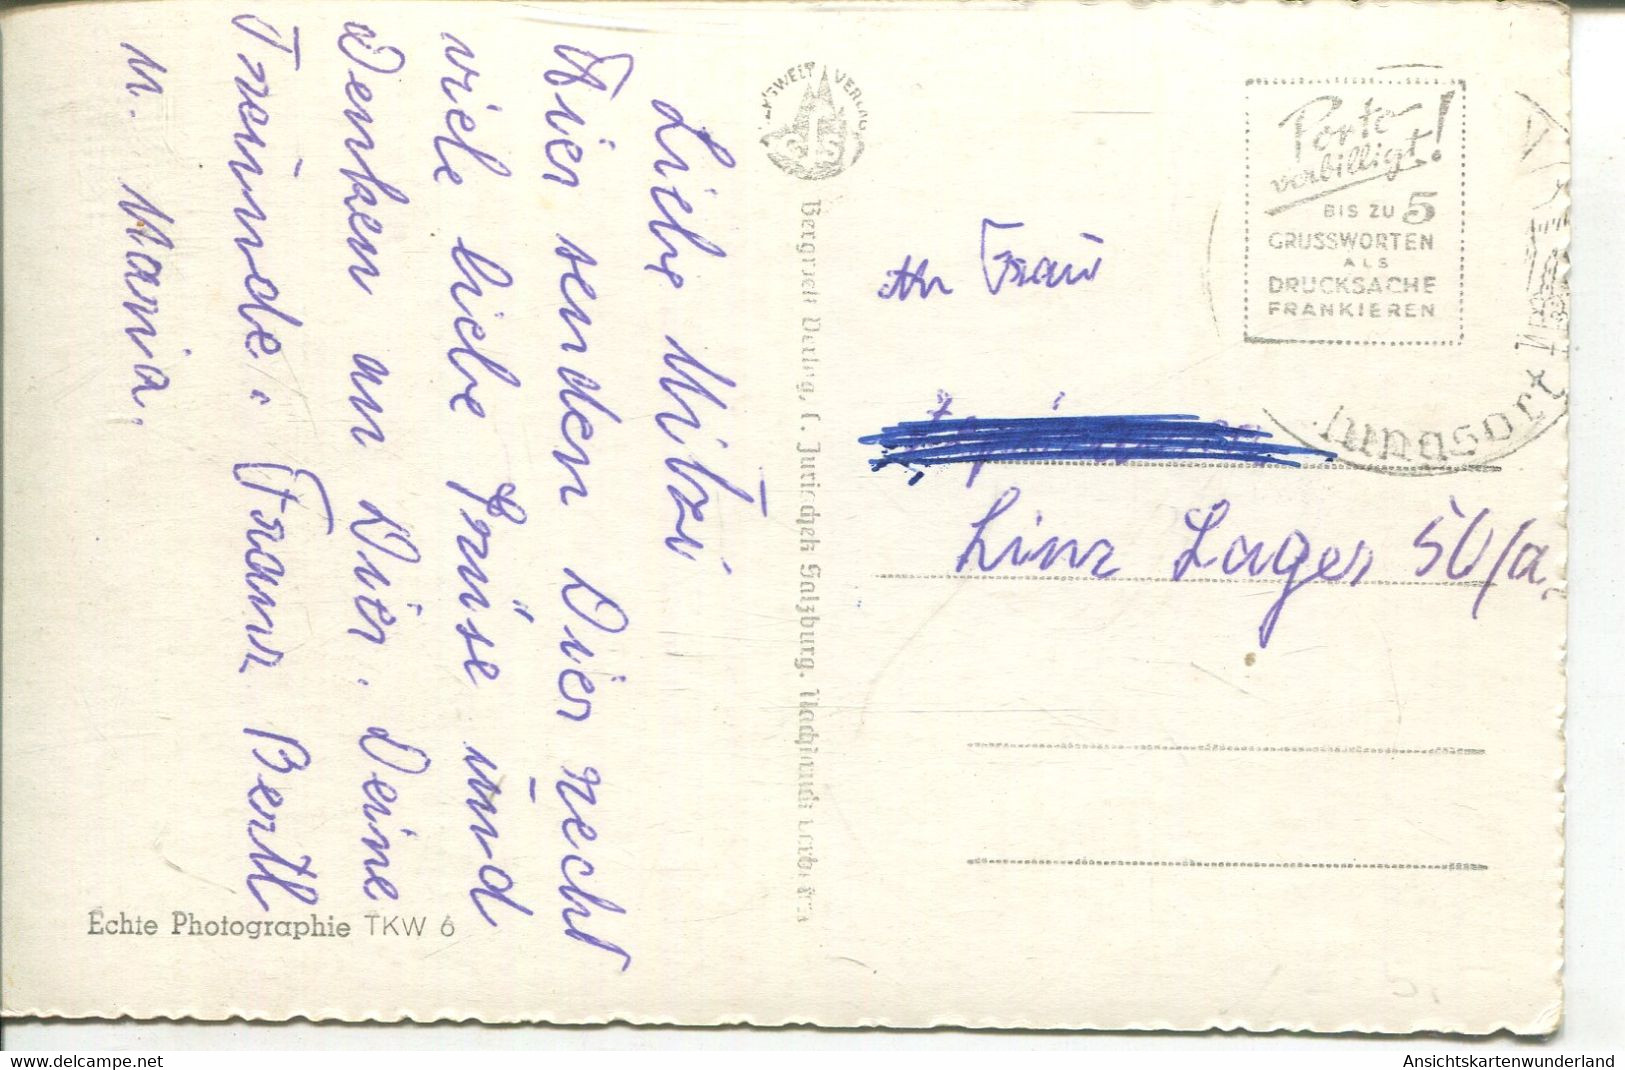 Liebe Mitzi
Hier senden Dier recht
viele liebe Grüse und
Denken an Dir. Deine
Freunde: Franz Bertl
u. Maria.
Echte Photographie TKW 6
Bergwelt Verlag, C. Jurischek Salzburg.
BERGWELT VERLAG
An Frau
Linz Lager 50/a
Porto
verbilligt!
BIS ZU 5
GRUSSWORTEN
ALS
DRUCKSACHE
FRANKIEREN
delcampe.net
Ansichtskartenwunderland